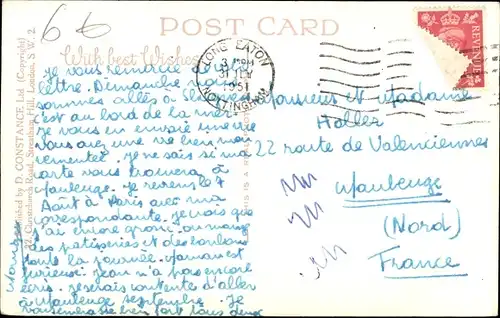 66
POST CARD
With best Wishes
LONG EATON
1951
NOTTINGHAM
REVENUE
Published by D. CONSTANCE Ltd. (Copyright)
22, Cunstanrorth Road, Streatham Hill, London, S.W. 2.
THIS IS A
je vous remercie de
lettre. Dimanche nous
sommes allés à
c'est au bord de la mer
je vous en envoie une vue
vous avez une vie bien mou
vementée. je ne sais si ma
carte vous trouvera à
Maubeuge. je reviens le 7
Août à Paris avec ma
correspondante. je crois que
j'ai encore grossi, on mange
des patisseries et des bonbons
toute la journée. Maman est
furieuse. Jean n'a pas encore
écrit. je serais contente d'aller
à Maubeuge septembre. je
vous embrasse bien fort tous deux
Monsieur et Madame
Haller
22 route de Valenciennes
Maubeuge
(Nord)
France